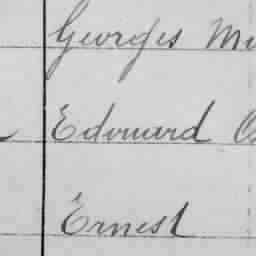 Georges
Edouard
Ernest